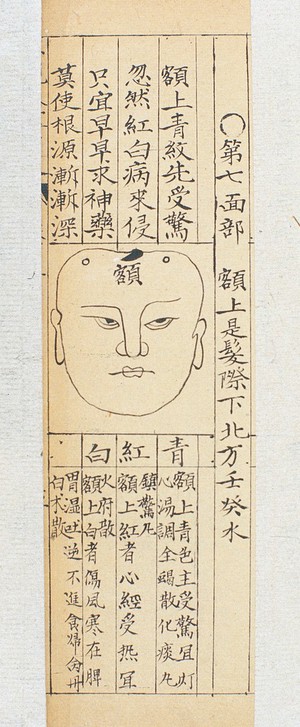 ○第七面部 額上是髮際下北方壬癸水
額上青紋先受驚
忽然紅白病來侵
只宜早早求神藥
莫使根源漸漸深
額
青
紅
白
額上青色主受驚宜灯
心湯調全蝎散化痰丸
鎮驚丸
額上紅者心經受热宜
火府散
額上白者傷風寒在脾
胃温吐逆不進食
白术散